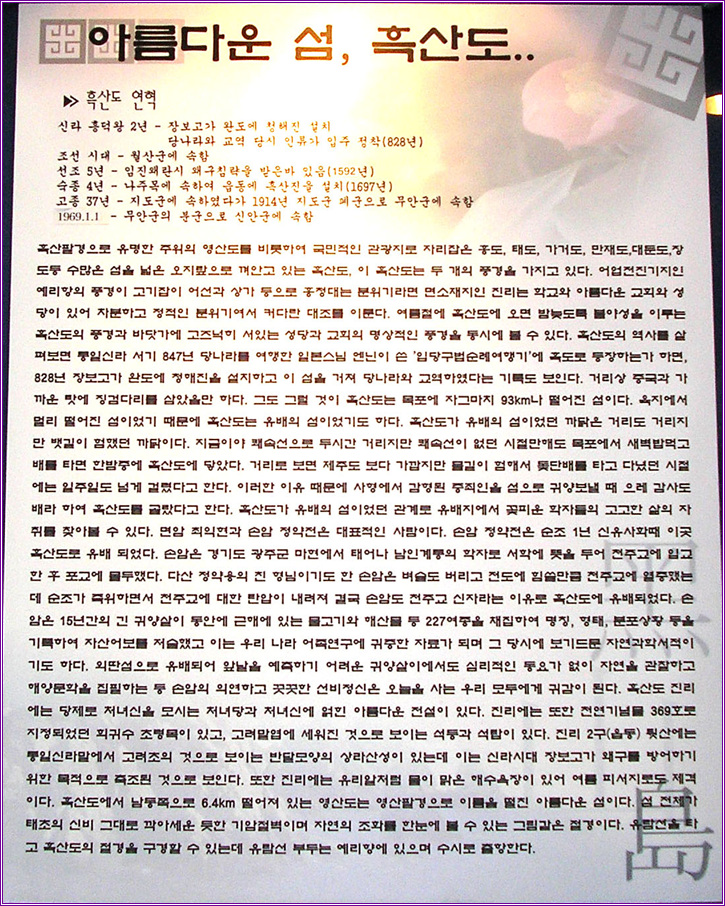 아름다운 섬, 흑산도..
▶▶ 흑산도 연혁
신라 흥덕왕 2년 - 장보고가 완도에 청해진 설치
당나라와 교역 당시 인류가 입주 정착(828년)
조선 시대 - 월산군에 속함
선조 5년 - 임진왜란시 왜구침략을 받은바 있음(1592년)
숙종 4년 - 나주목에 속하여 읍동에 흑산진을 설치(1697년)
고종 37년 - 지도군에 속하였다가 1914년 지도군 폐군으로 무안군에 속함
1969.1.1 - 무안군의 분군으로 신안군에 속함
흑산팔경으로 유명한 주위의 영산도를 비롯하여 국민적인 관광지로 자리잡은 홍도, 태도, 가거도, 만재도,대둔도,장
도등 수많은 섬을 넓은 오지랖으로 껴안고 있는 흑산도, 이 흑산도는 두 개의 풍경을 가지고 있다. 어업전진기지인
예리항의 풍경이 고기잡이 어선과 상가 등으로 흥청대는 분위기라면 면소재지인 진리는 학교와 아름다운 교회와 성
당이 있어 차분하고 정적인 분위기여서 커다란 대조를 이룬다. 여름철에 흑산도에 오면 밤늦도록 불야성을 이루는
흑산도의 풍경과 바닷가에 고즈넉히 서있는 성당과 교회의 명상적인 풍경을 동시에 볼 수 있다. 흑산도의 역사를 살
펴보면 통일신라 서기 847년 당나라를 여행한 일본스님 엔닌이 쓴 '입당구법순례여행기'에 흑도로 등장하는가 하면,
828년 장보고가 완도에 청해진을 설치하고 이 섬을 거쳐 당나라와 교역하였다는 기록도 보인다. 거리상 중국과 가
까운 탓에 징검다리를 삼았을만 하다. 그도 그럴 것이 흑산도는 목포에 자그마치 93km나 떨어진 섬이다. 육지에서
멀리 떨어진 섬이었기 때문에 흑산도는 유배의 섬이었기도 하다. 흑산도가 유배의 섬이었던 까닭은 거리도 거리지
만 뱃길이 험했던 까닭이다. 지금이야 쾌속선으로 두시간 거리지만 쾌속선이 없던 시절만해도 목포에서 새벽밥먹고
배를 타면 한밤중에 흑산도에 닿았다. 거리로 보면 제주도 보다 가깝지만 물길이 험해서 돛단배를 타고 다녔던 시절
에는 일주일도 넘게 걸렸다고 한다. 이러한 이유 때문에 사형에서 감형된 중죄인을 섬으로 귀양보낼 때 으레 감사도
배라 하여 흑산도를 골랐다고 한다. 흑산도가 유배의 섬이었던 관계로 유배지에서 꽃피운 학자들의 고고한 삶의 자
취를 찾아볼 수 있다. 면암 최익현과 손암 정약전은 대표적인 사람이다. 손암 정약전은 순조 1년 신유사화때 이곳
흑산도로 유배 되었다. 손암은 경기도 광주군 마현에서 태어나 남인계통의 학자로 서학에 뜻을 두어 천주교에 입교
한 후 포교에 몰두했다. 다산 정약용의 친 형님이기도 한 손암은 벼슬도 버리고 전도에 힘쓸만큼 천주교에 열중했는
데 순조가 즉위하면서 천주교에 대한 탄압이 내려져 결국 손암도 천주교 신자라는 이유로 흑산도에 유배되었다. 손
암은 15년간의 긴 귀양살이 동안에 근해에 있는 물고기와 해산물 등 227여종을 채집하여 명칭, 형태, 분포상황 등을
기록하여 자산어보를 저술했고 이는 우리 나라 어족연구에 귀중한 자료가 되며 그 당시에 보기드문 자연과학서적이
기도 하다. 외딴섬으로 유배되어 앞날을 예측하기 어려운 귀양살이에서도 심리적인 동요가 없이 자연을 관찰하고
해양문학을 집필하는 등 손암의 의연하고 꼿꼿한 선비정신은 오늘을 사는 우리 모두에게 귀감이 된다. 흑산도 진리
에는 당제로 처녀신을 모시는 처녀당과 처녀신에 얽힌 아름다운 전설이 있다. 진리에는 또한 천연기념물 369호로
지정되었던 희귀수 초령목이 있고, 고려말엽에 세워진 것으로 보이는 석등과 석탑이 있다. 진리 2구(읍동) 뒷산에는
통일신라말에서 고려초의 것으로 보이는 반달모양의 상라산성이 있는데 이는 신라시대 장보고가 왜구를 방어하기
위한 목적으로 축조된 것으로 보인다. 또한 진리에는 유리알처럼 물이 맑은 해수욕장이 있어 여름 피서지로도 제격
이다. 흑산도에서 남동쪽으로 6.4km 떨어져 있는 영산도는 영산팔경으로 이름을 떨친 아름다운 섬이다. 섬 전체가
태조의 신비 그대로 깎아세운 듯한 기암절벽이며 자연의 조화를 한눈에 볼 수 있는 그림같은 절경이다. 유람선을 타
고 흑산도의 절경을 구경할 수 있는데 유람선 부두는 예리항에 있으며 수시로 출항한다.
黑
島